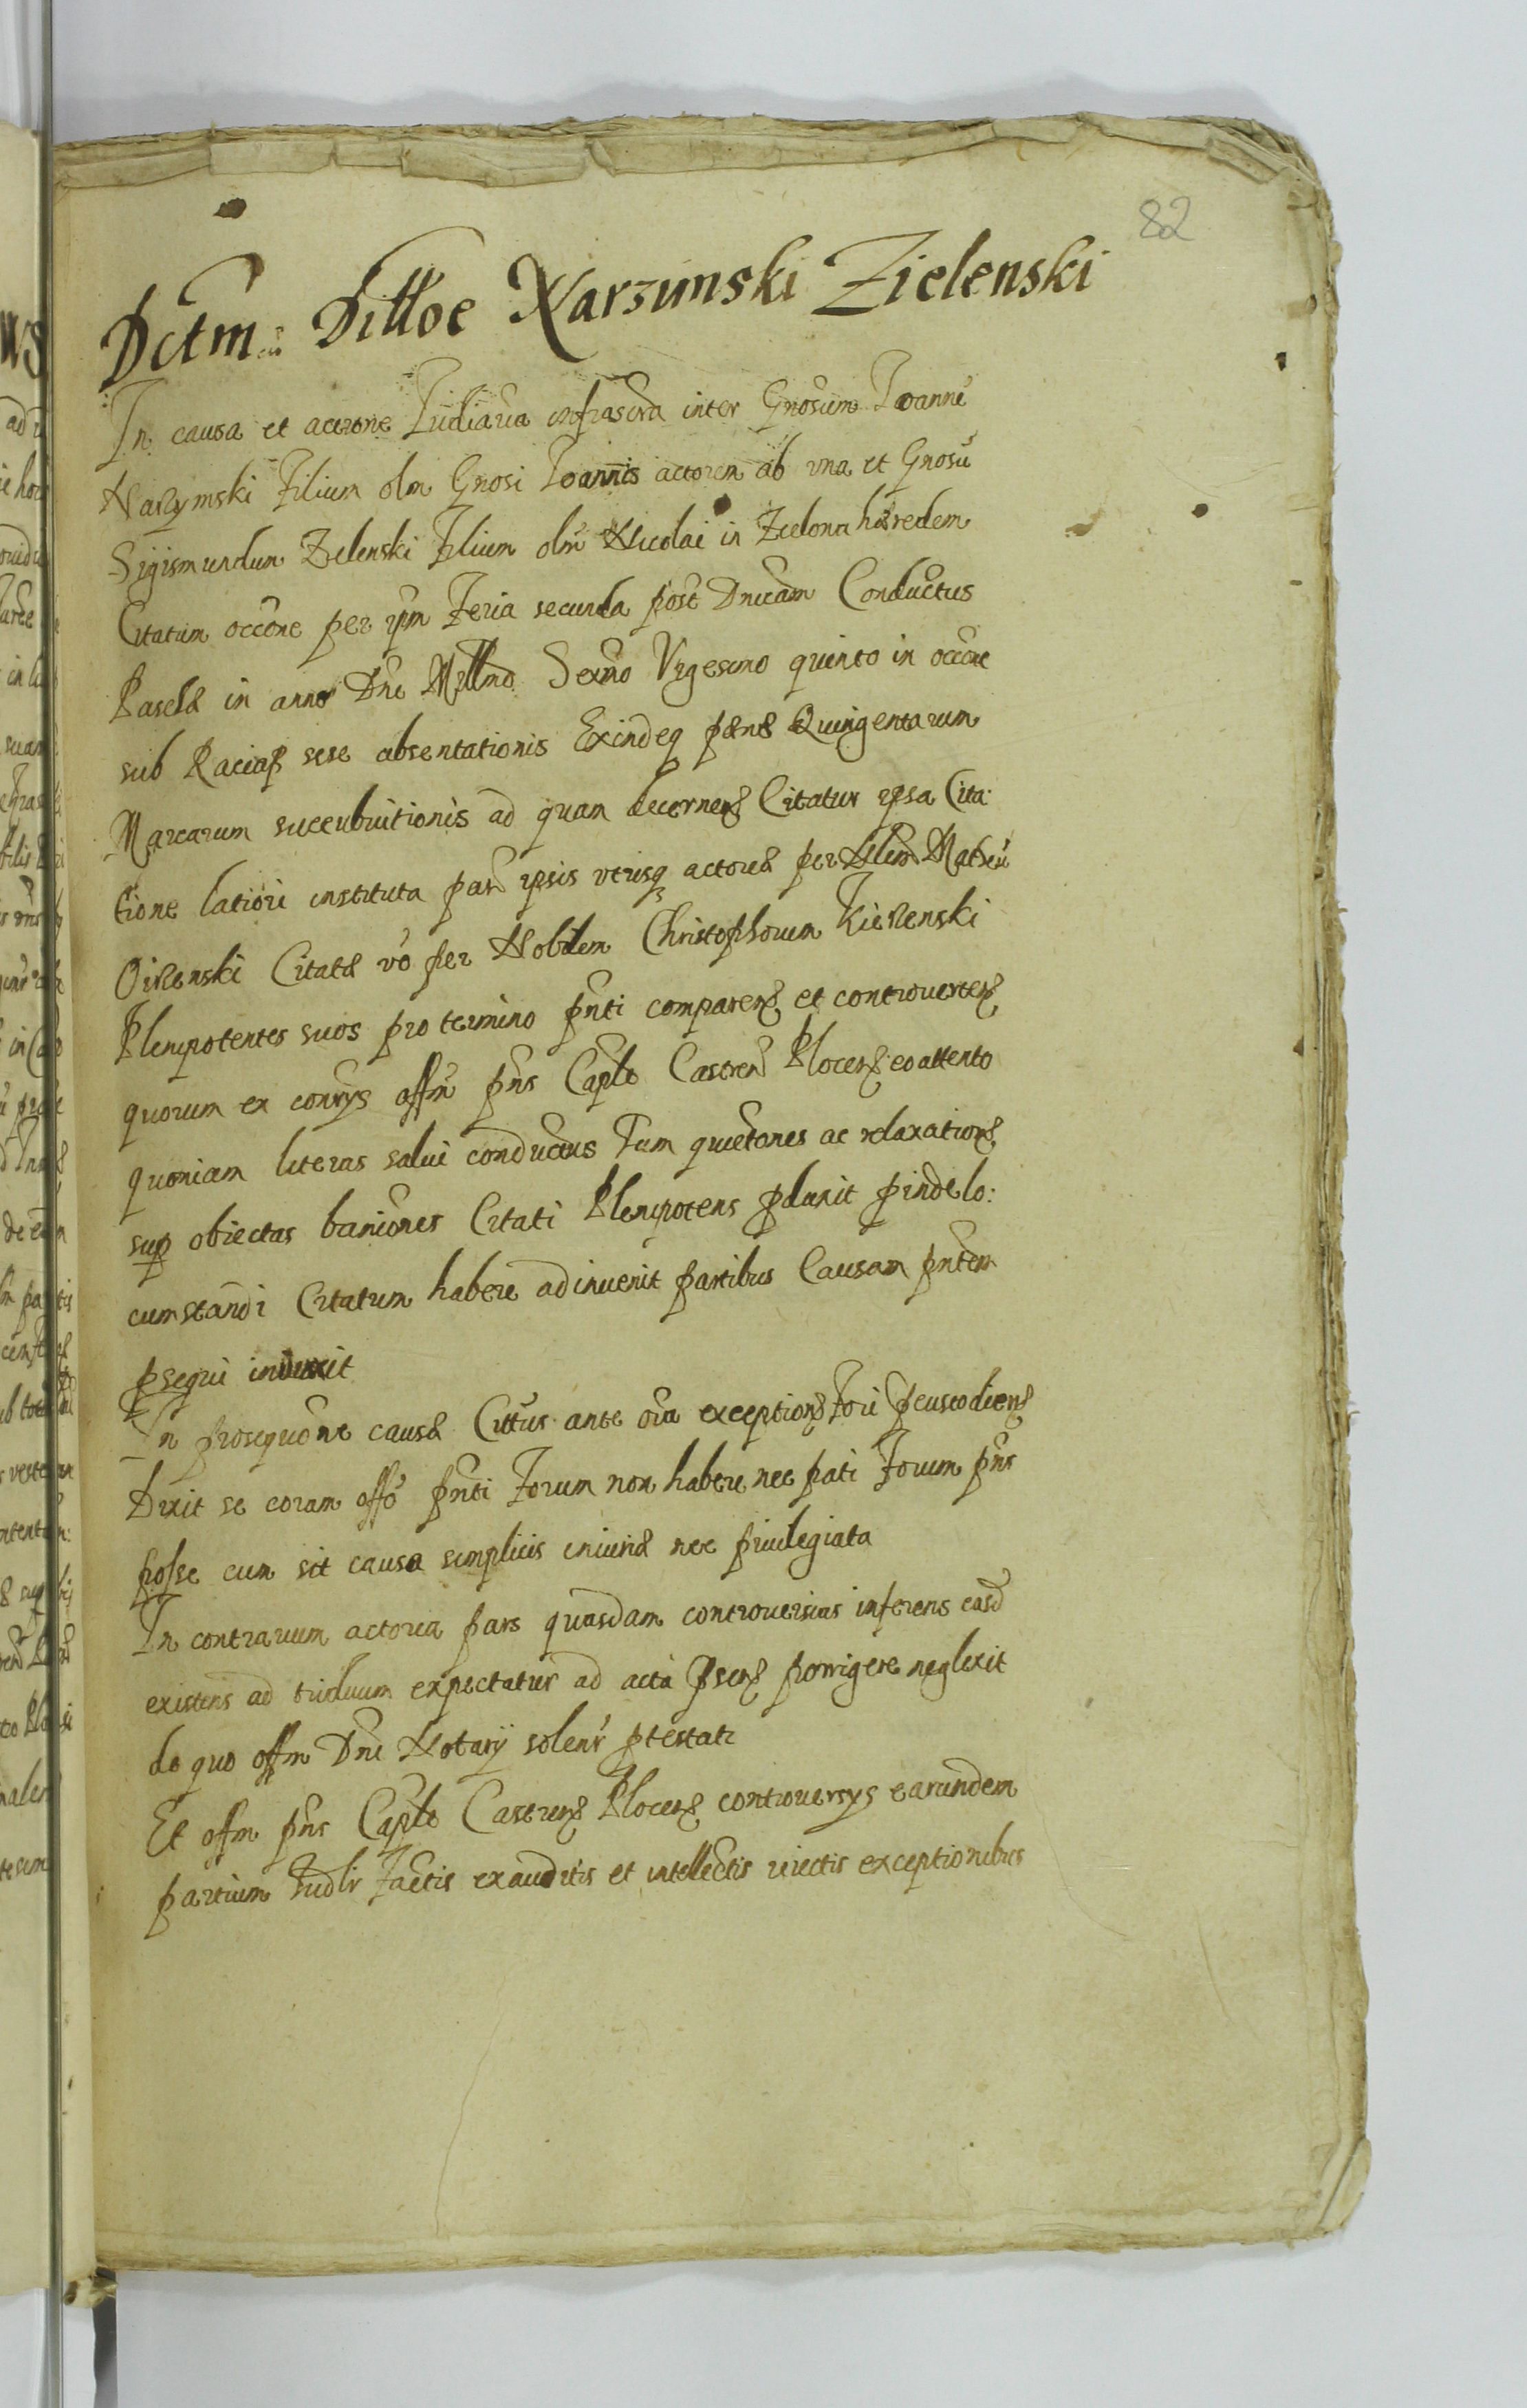 82
Dctm: Dilloe Narzimski Zielenski
In causa et accione Judiaria infrascra inter Gnosum Joannē
Narzymski Filium olm Gnosi Joannis actorem ab vna et Gnosū
Sigismundum Zelenski Filium olm Nicolai in Zielona hæredem
Citatum occone per ipm Feria secunda post Dnicam Conductus
Paschæ in anno Dni Millmo Sexmo Vigesimo quinto in occone
sub Raciaß sese absentationis Exindeq pænæ Quingentarum
Marcarum succubuitionis ad quam decernen Citatur ipsa Cita:
tione latiori instituta par ipsis vtrisq actoræ per Nlem Matheū
Citatæ vo per Nobilem Christophorum
Plenipotentes suos pro termino pnti comparen et controuerten
quorum ex contrys offm pns Capło Castren Plocen eo attento
quoniam literas salui conductus Tum quietones ac relaxationes
sup obiectas baniones Citati Plenipotens pduxit pinde lo:
cum standi Citatum habere adinuenit partibus Causam pntem
psequi iniunxit
In prosequone causæ Citus ante oia exception Fori
Dixit se coram offo pnti Forum non habere nec pati Forum pns
posse cum sit causa simplicis iniuriæ nec priuilegiata
In contrarium actorea pars quasdam controuersias inferens easd
existens ad triduum expectatur ad acta psen porrigere neglexit
de quo offm Dni Notary solenr ptestatr
Et offm pns Capło Castren Plocen controuersys earundem
partium Judlr Factis exauditis et intellectis reiectis exceptionibus